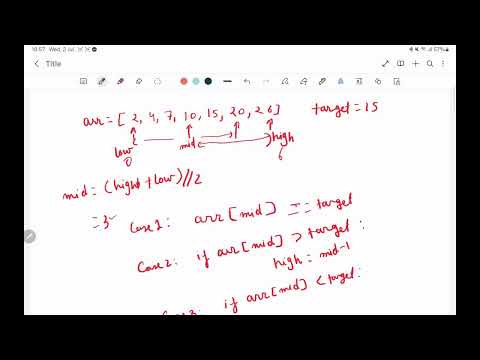 18:57 Wed, 2 Jul
57%
Title
arr = [ 2, 4, 7, 10, 15, 20, 26] target = 15
low mid high
0 6
mid = (high + low) // 2
= 3
Case 1: arr [mid] == target
Case 2: if arr [mid] > target :
high = mid-1
Case 3: if arr [mid] < target :